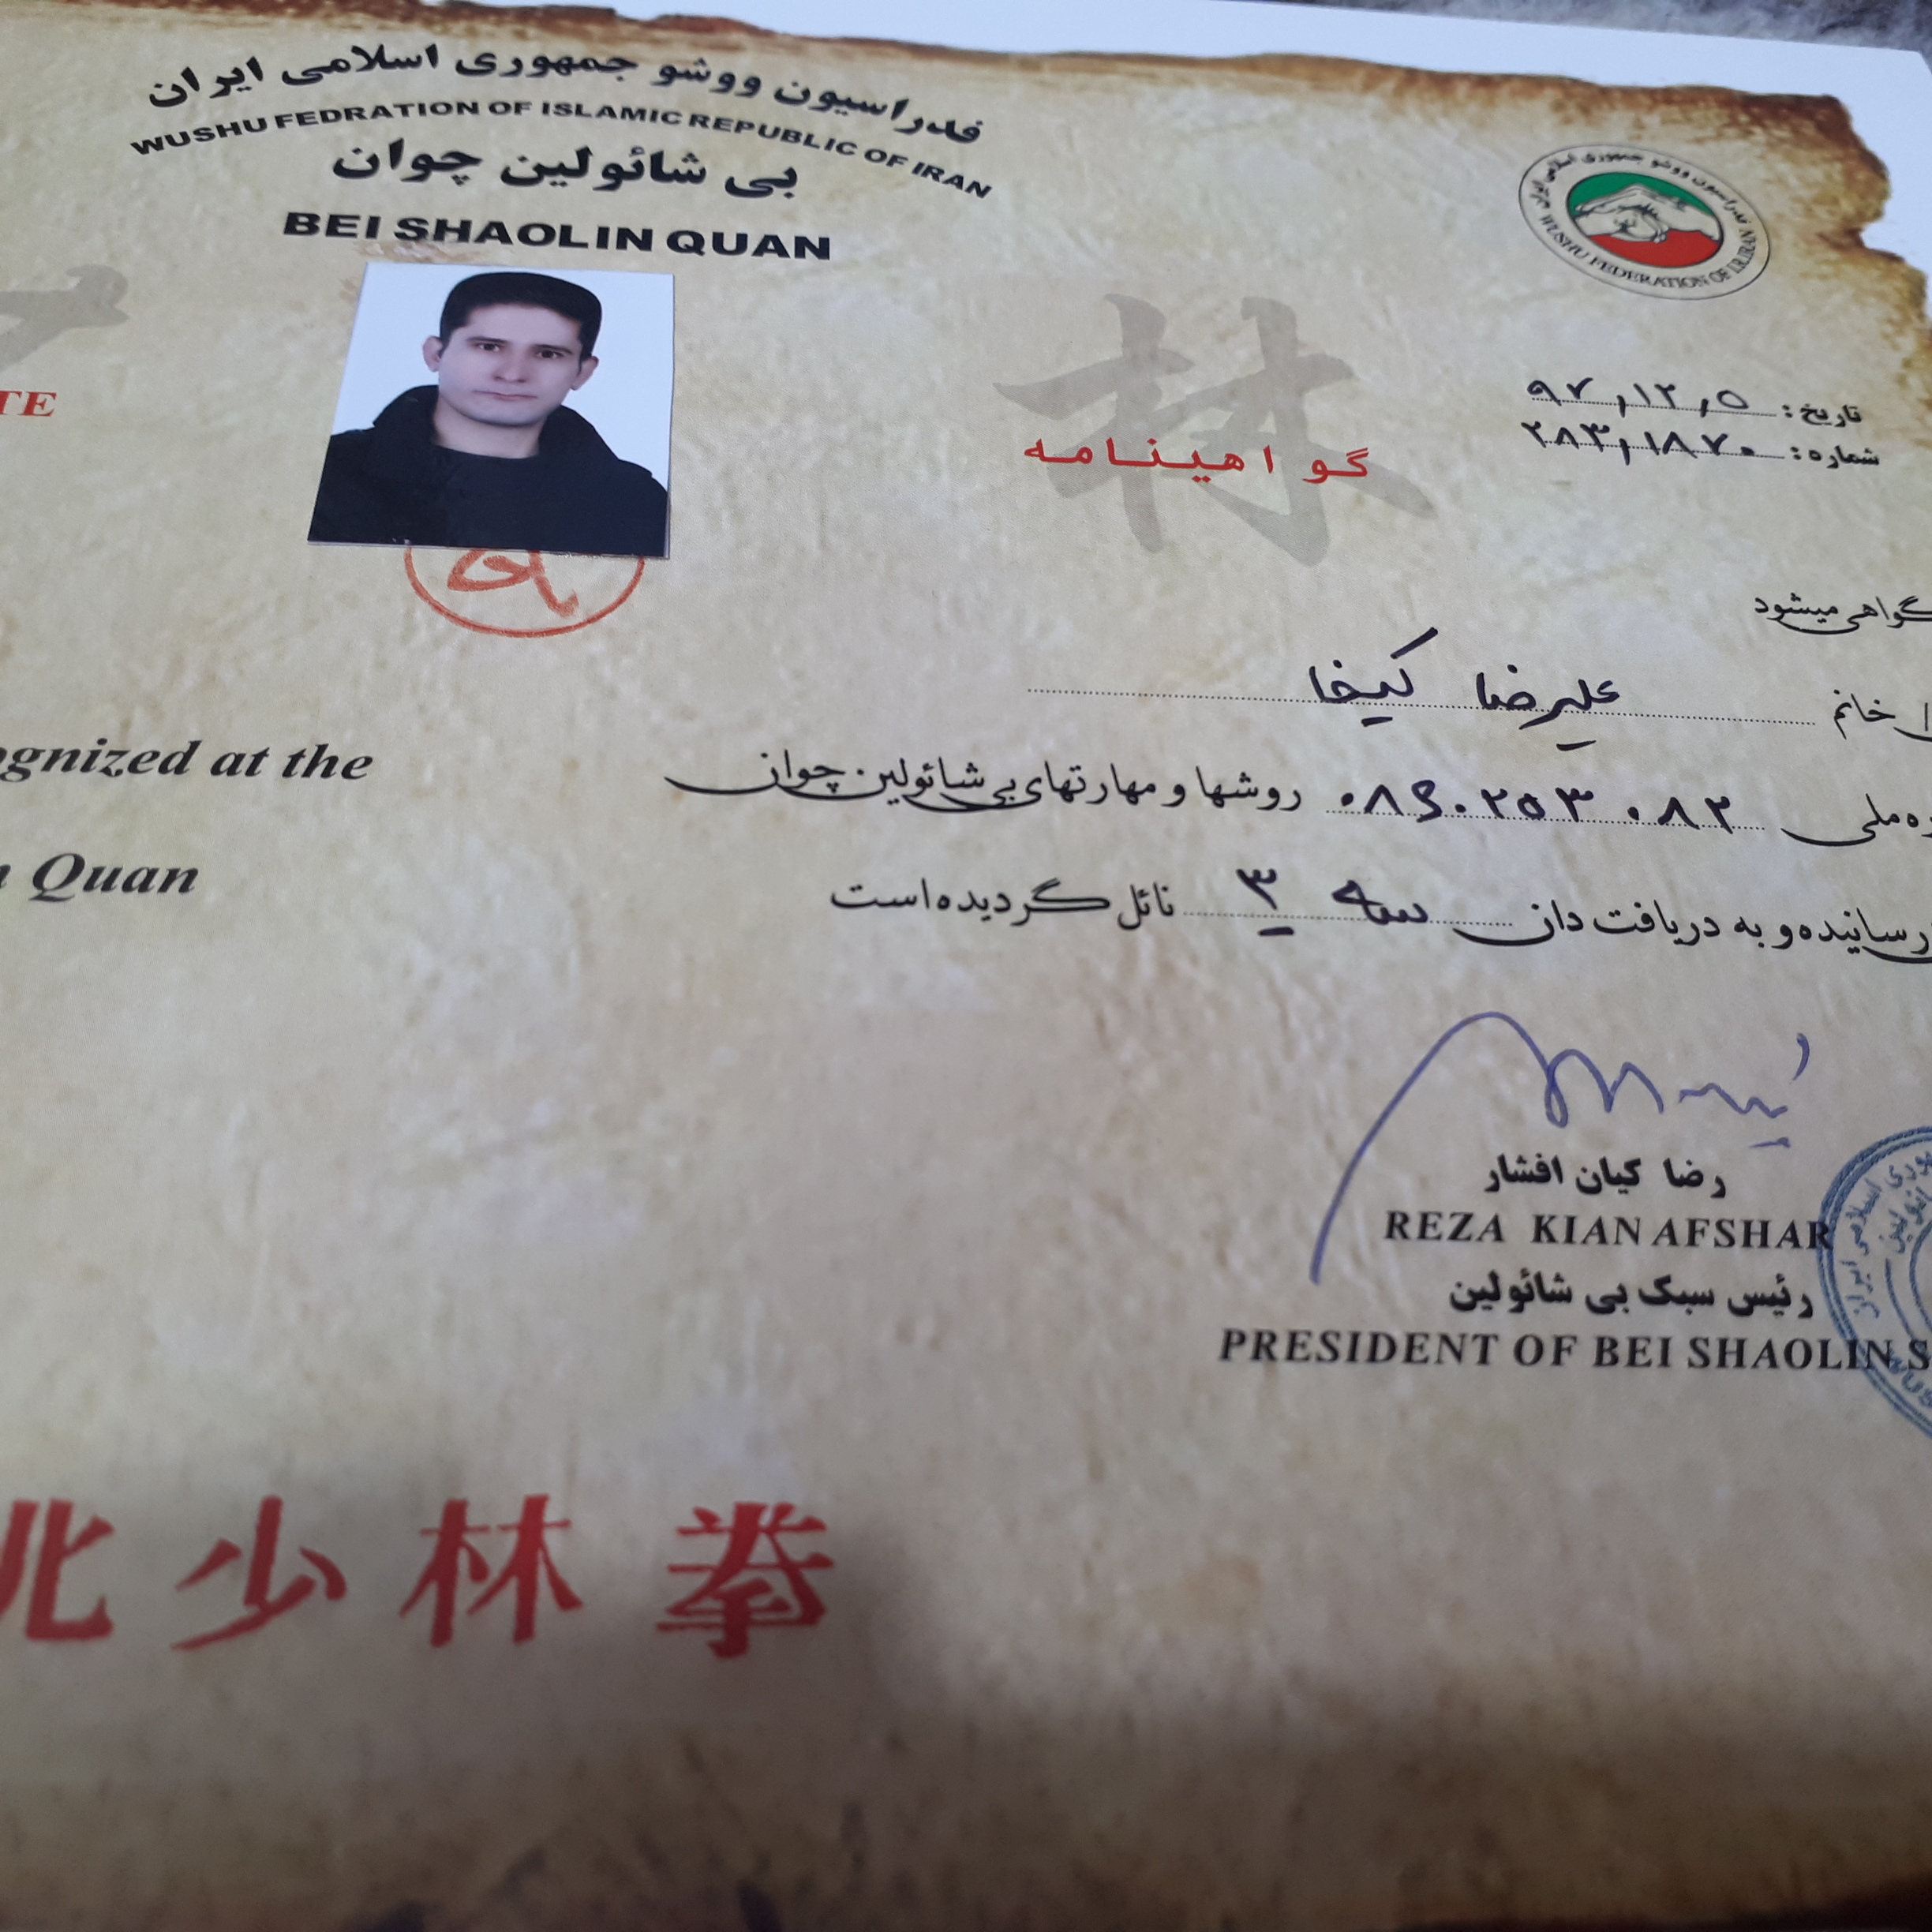 فدراسیون ووشو جمهوری اسلامی ایران
WUSHU FEDRATION OF ISLAMIC REPUBLIC OF IRAN
بی شائولین چوان
BEI SHAOLIN QUAN
فدراسیون ووشو جمهوری اسلامی ایران
WUSHU FEDERATION OF I.R.IRAN
林
TE
گواهینامه
تاریخ: ۹۷,۱۲,۵
شماره: ۲۸۳,۱۸۷۰
گواهی میشود
خانم علیرضا کیخا
ه ملی ۰۸۶۰۲۵۳۰۸۲ روشها و مهارتهای بی شائولین چوان
رسانیده و به دریافت دان سه ۳ نائل گردیده است
ognized at the
n Quan
رضا کیان افشار
REZA KIAN AFSHAR
رئیس سبک بی شائولین
PRESIDENT OF BEI SHAOLIN S
北少林拳